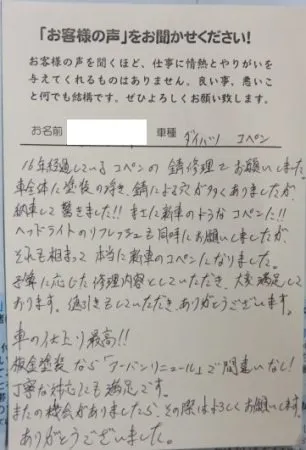 「お客様の声」をお聞かせください!
お客様の声を聞くほど、仕事に情熱とやりがいを
与えてくれるものはありません。良い事、悪いこ
と何でも結構です。ぜひよろしくお願い致します。
お名前 車種 ダイハツ コペン
16年経過しているコペンの錆修理でお願いしました。
車全体に塗装の浮き、錆による穴が多くありましたが、
納車して驚きました!! まさに新車のようなコペンに!!
ヘッドライトのリフレッシュも同時にお願いしましたが、
それも相まって本当に新車のコペンになりました。
予算に応じた修理内容としていただき、大変満足して
おります。値引きもしていただき、ありがとうございます。
車の仕上り最高!!
板金塗装なら「アーバンリニュール」で間違いなし!
丁寧な対応もとても満足です。
またの機会がありましたら、その際はよろしくお願いします。
ありがとうございました。